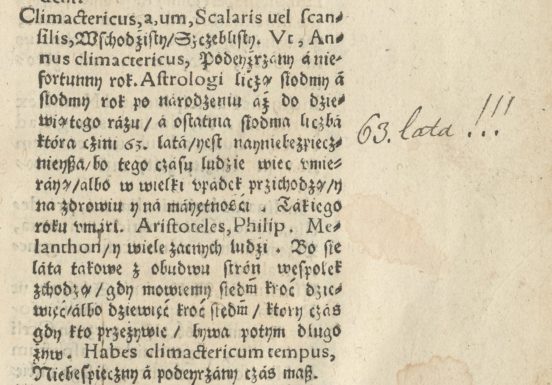 Climactericus, a, um, Scalaris uel scan-
silis, Wschodzisty/Szczeblisty. Vt, An-
nus climactericus, Podeyźrzány á nie-
fortunny rok. Astrologi liczą siodmy á
siodmy rok po národzeniu áż do dzie-
wiątego rázu/ á ostatnia siodma liczbá
która czini 63. latá/ yest nayniebezpiecz-
nieyßa/ bo tego czásu ludzie wiec vmie-
ráyą/ albo w wielki vpádek przichodzą/ y
ná zdrowiu y ná máyętności . Tákiego
roku vmárł. Aristoteles, Philip. Me-
lanthon/ y wiele zacnych ludzi . Bo sie
látá tákowe z obudwu strón wespołek
zchodzą/ gdy mowiemy siedm̃ kroć dzie-
więć/ álbo dziewięć kroć siedm̃/ ktory czás
gdy kto przeżywie / bywa potym dlugo
żyw. Habes climactericum tempus,
Niebespieczny á podeyrzány czás maß.
63. lata !!!